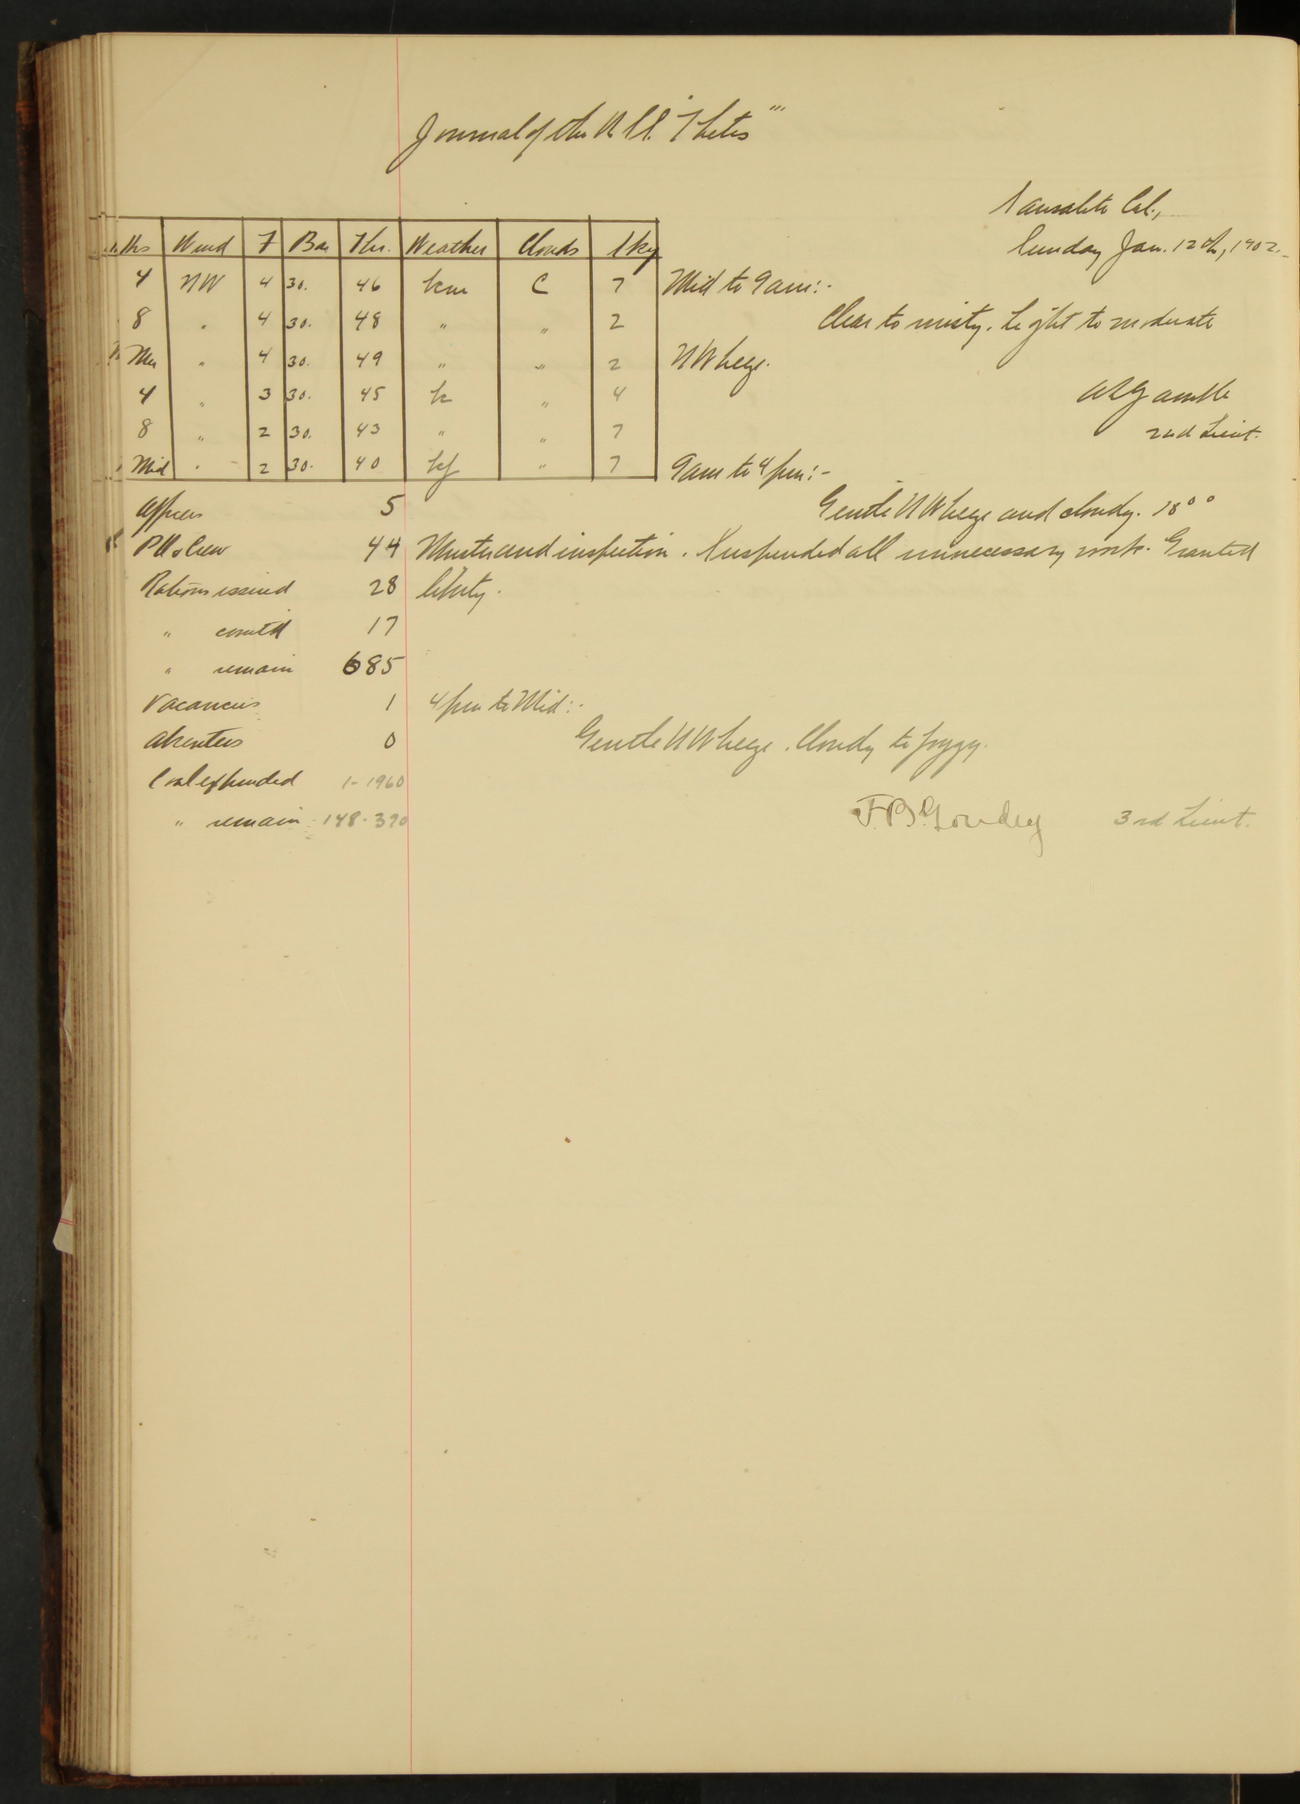 Journal of the R.C.S. "Thetis"
Sausalito Cal.,
Sunday Jan. 12th, 1902.
Hrs Wind F Bar Thr. Weather Clouds Sky
4 NW 4 30. 46 bcm C 7
8 " 4 30. 48 " " 2
Mer " 4 30. 49 " " 2
4 " 3 30. 45 bc " 4
8 " 2 30. 43 " " 7
Mid " 2 30. 40 bcf " 7
Mid to 9 am:-
Clear to misty. Light to moderate
NW breeze.
A L Gamble
2nd Lieut.
9 am to 4 pm:-
Gentle NW breeze and cloudy. 10°°
Muster and inspection. Suspended all unnecessary work. Granted
liberty.
Officers 5
P.O. & Crew 44
Rations issued 28
" comtd 17
" remain 685
Vacancies 1
Absentees 0
Coal expended 1-1960
" remain 148-390
4 pm to Mid:-
Gentle NW breeze. Cloudy to foggy.
3rd Lieut.